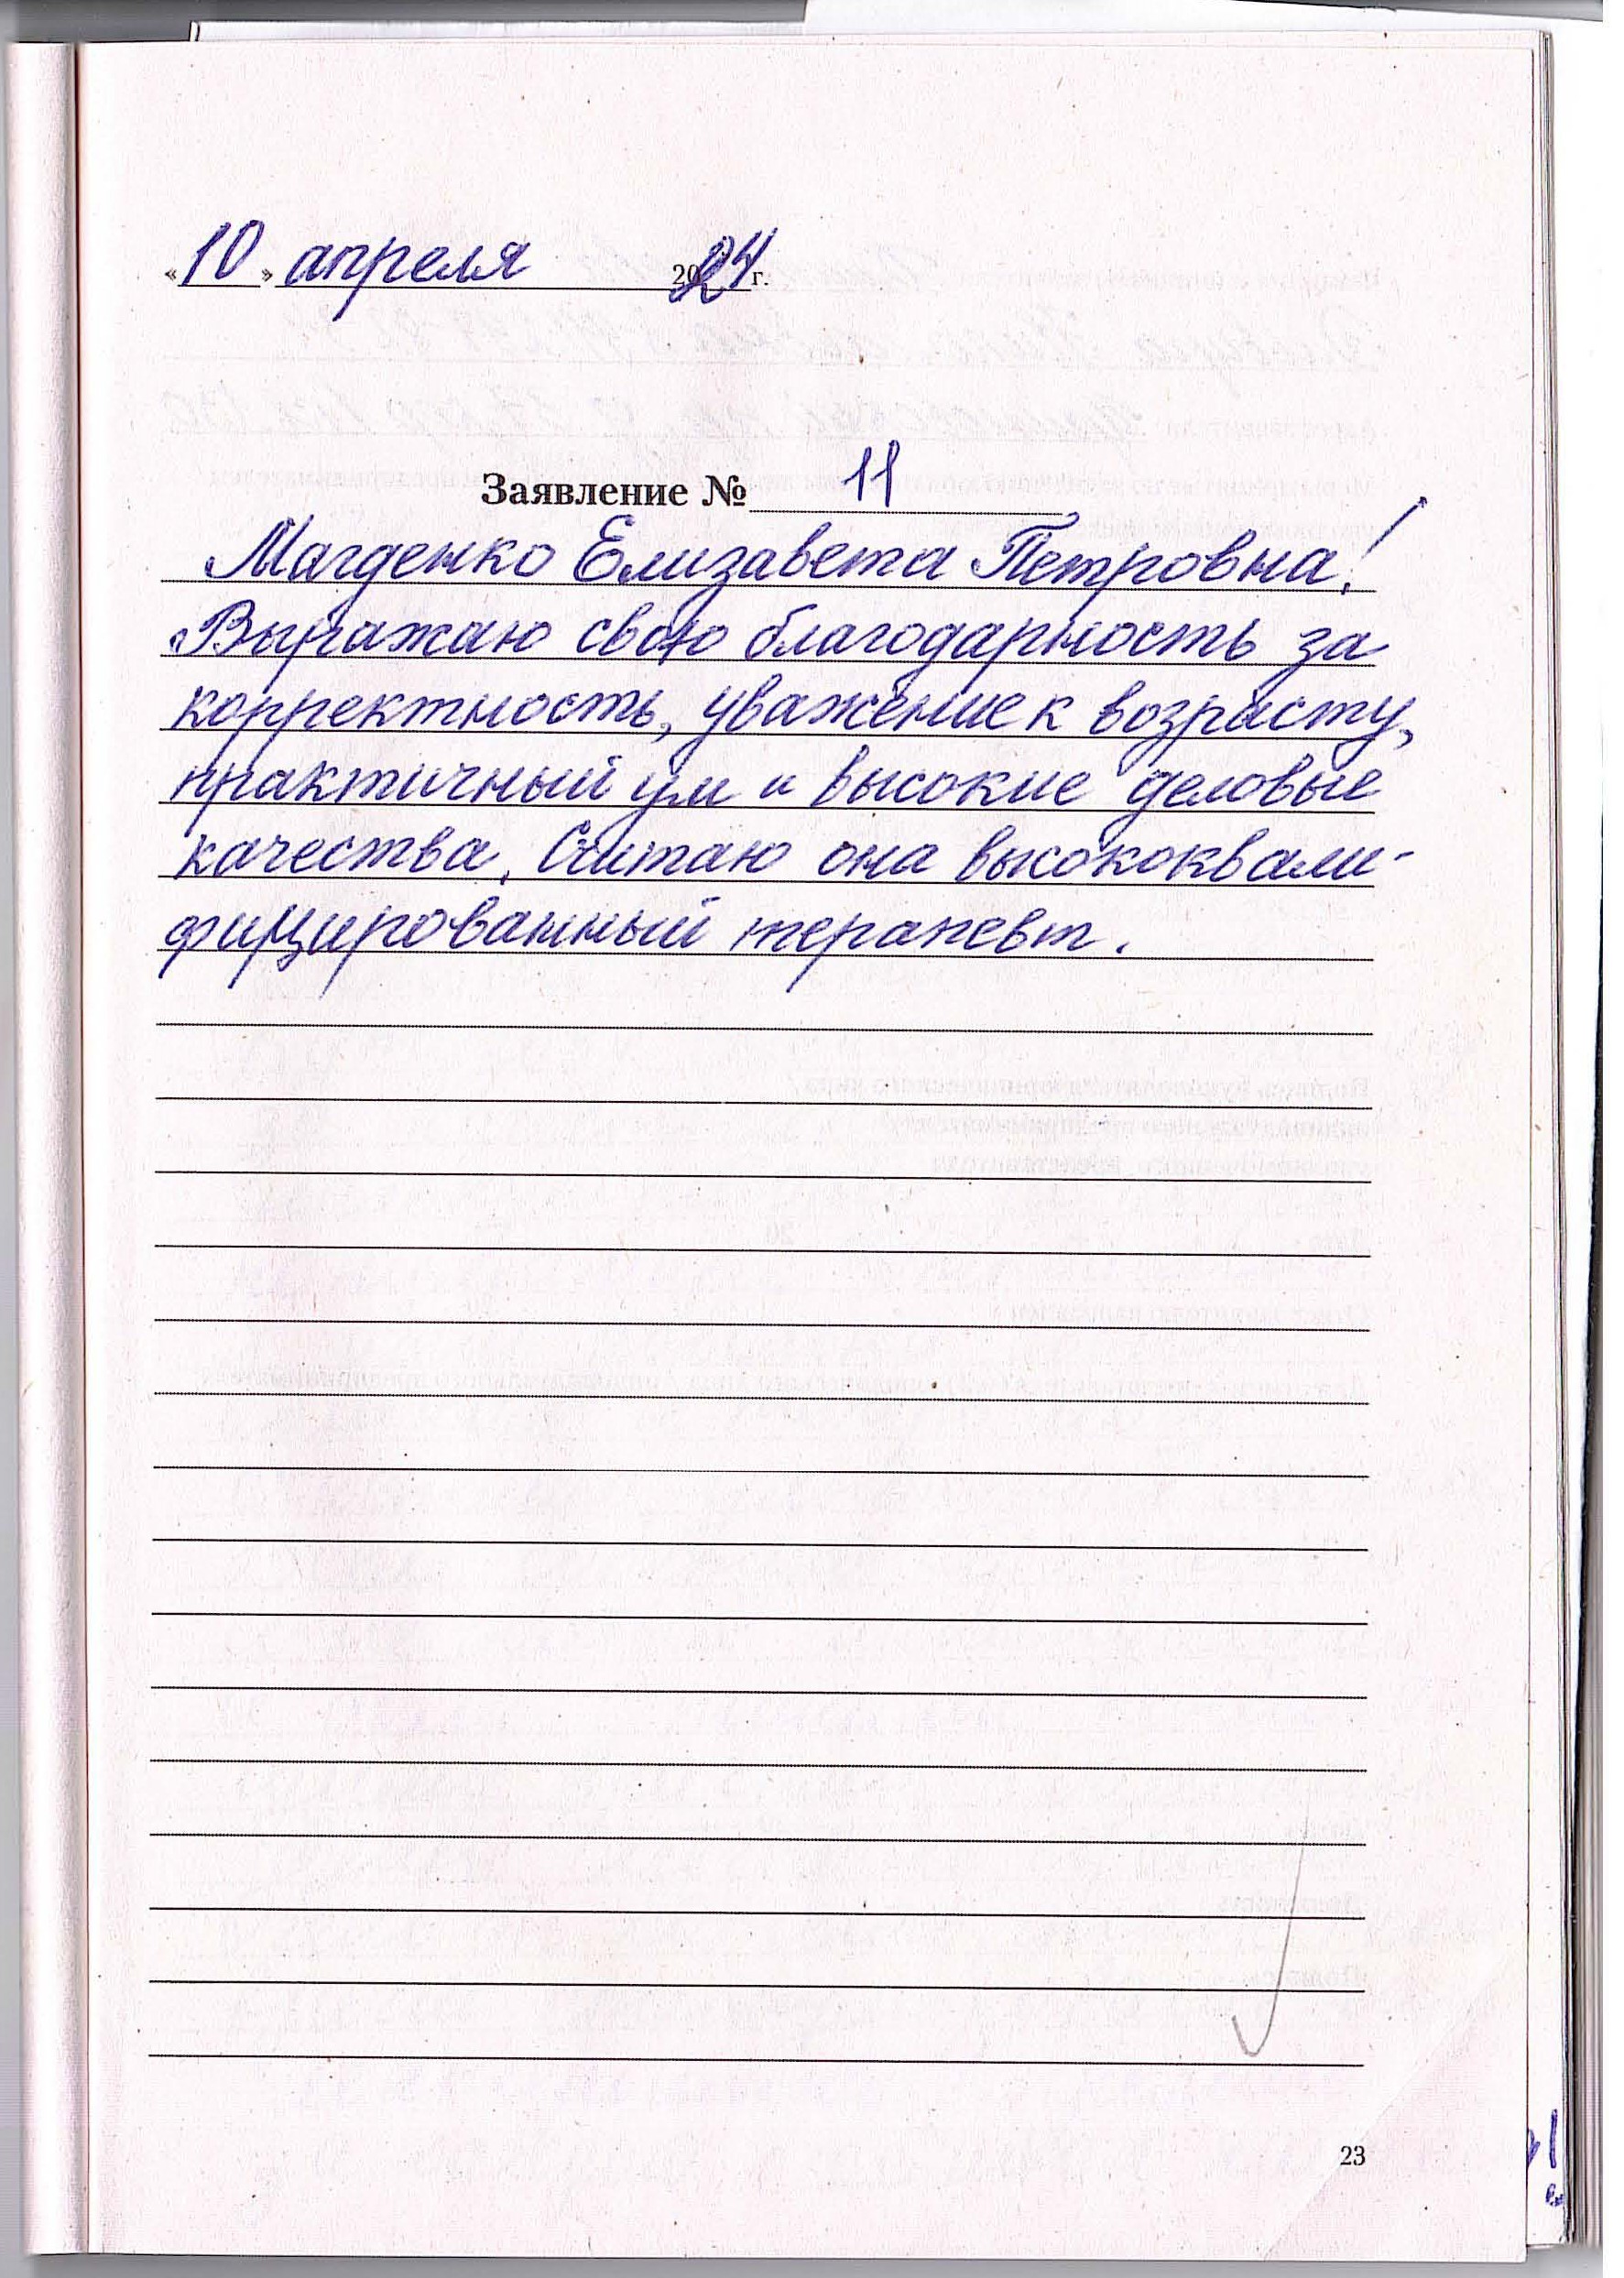 «10» апреля 2024 г.
Заявление № 11
Магденко Елизавета Петровна!
Выражаю свою благодарность за
корректность, уважение к возрасту,
практичный ум и высокие деловые
качества. Считаю она высококвали-
фицированный терапевт.
23